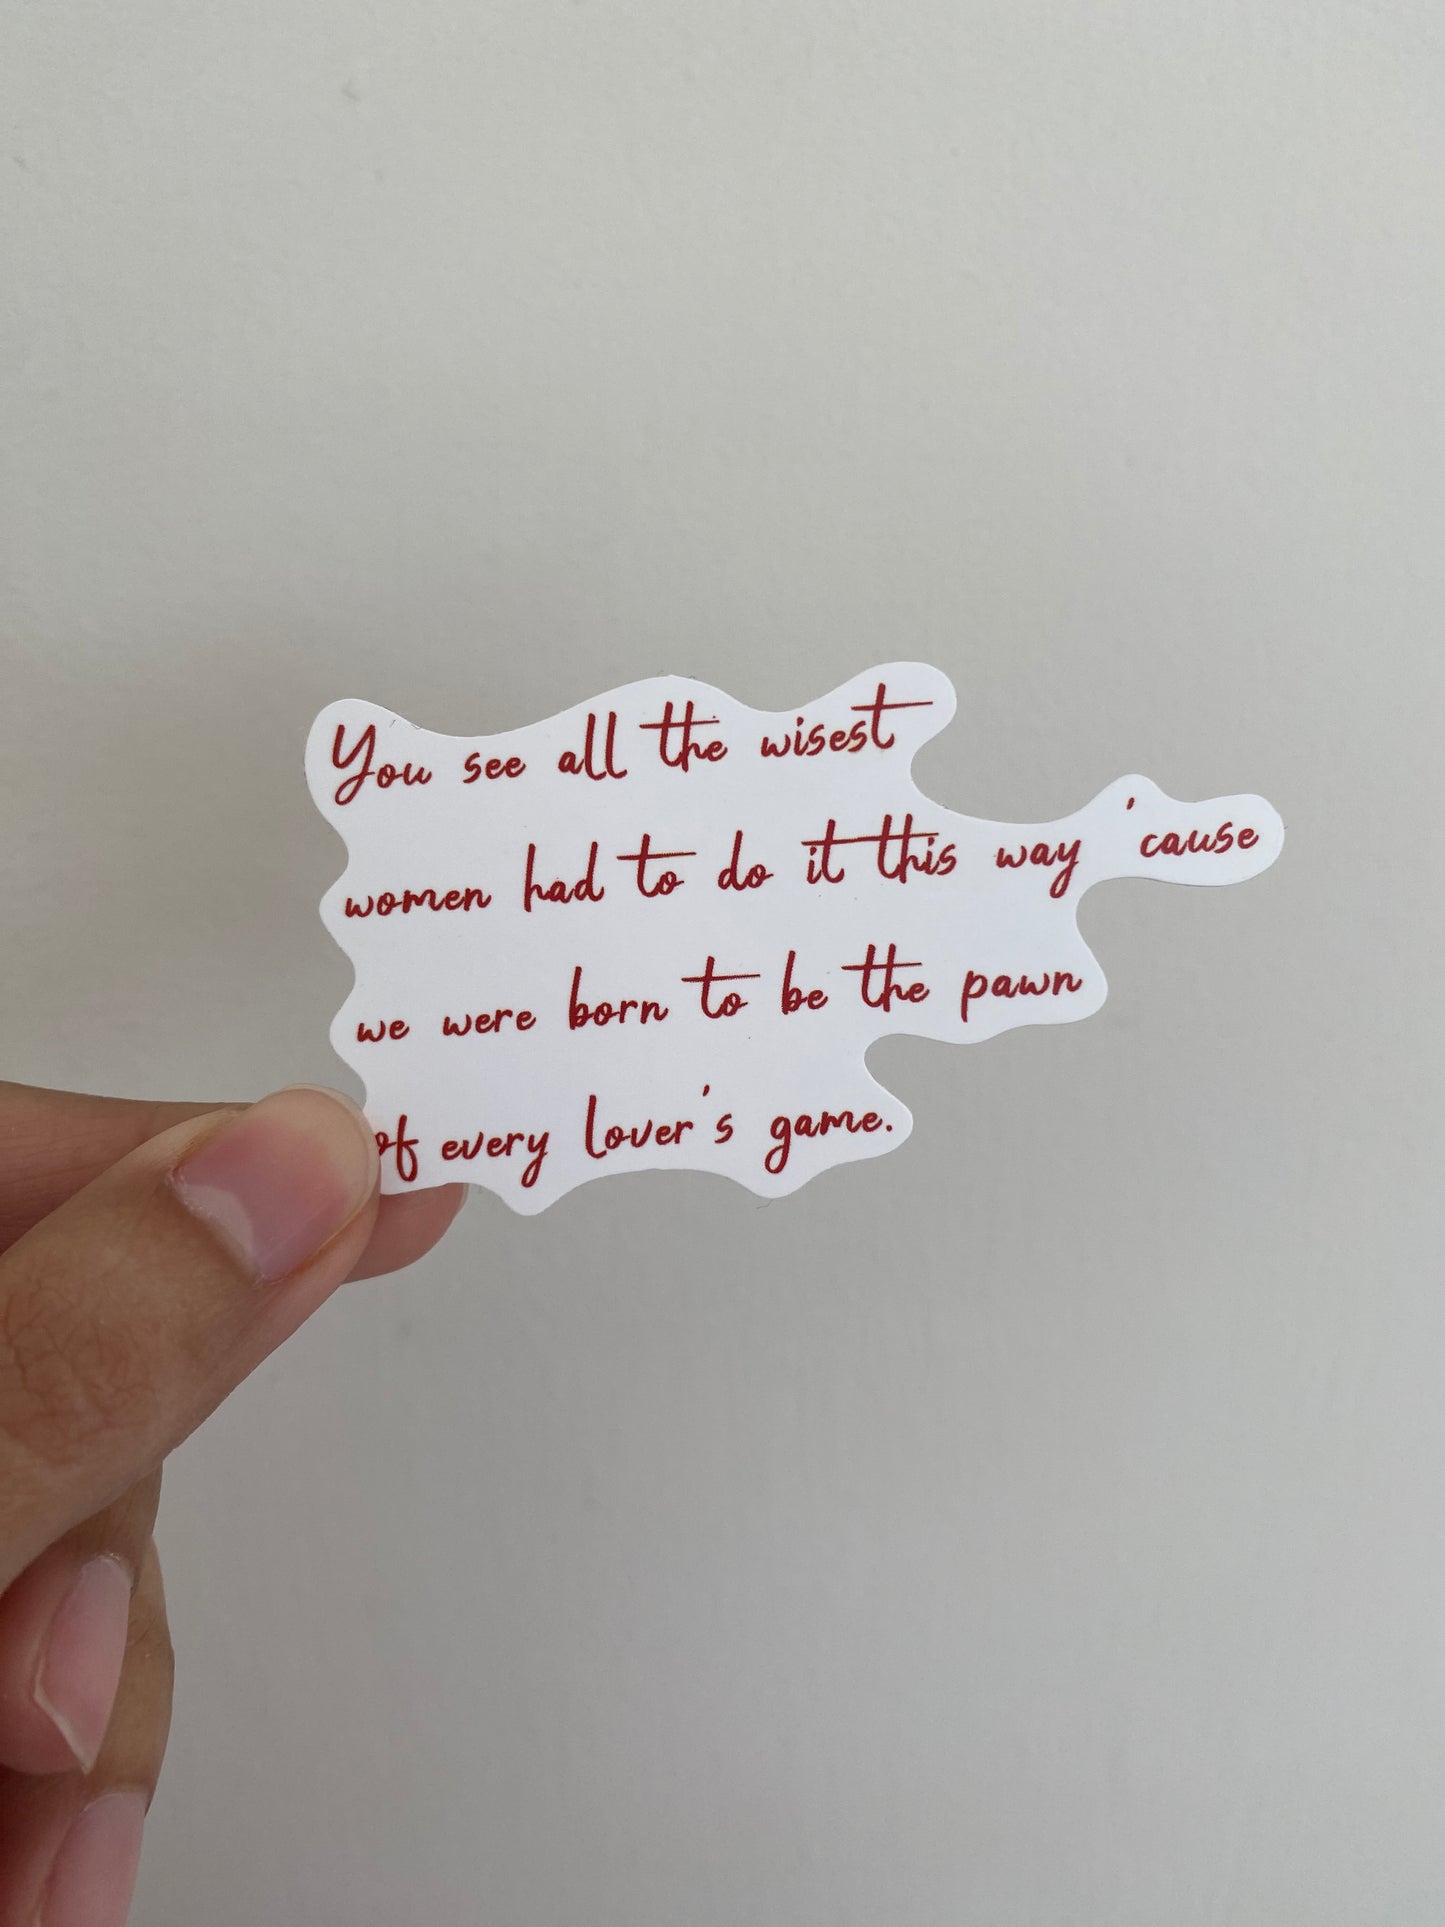 You see all the wisest
women had to do it this way 'cause
we were born to be the pawn
of every lover's game.